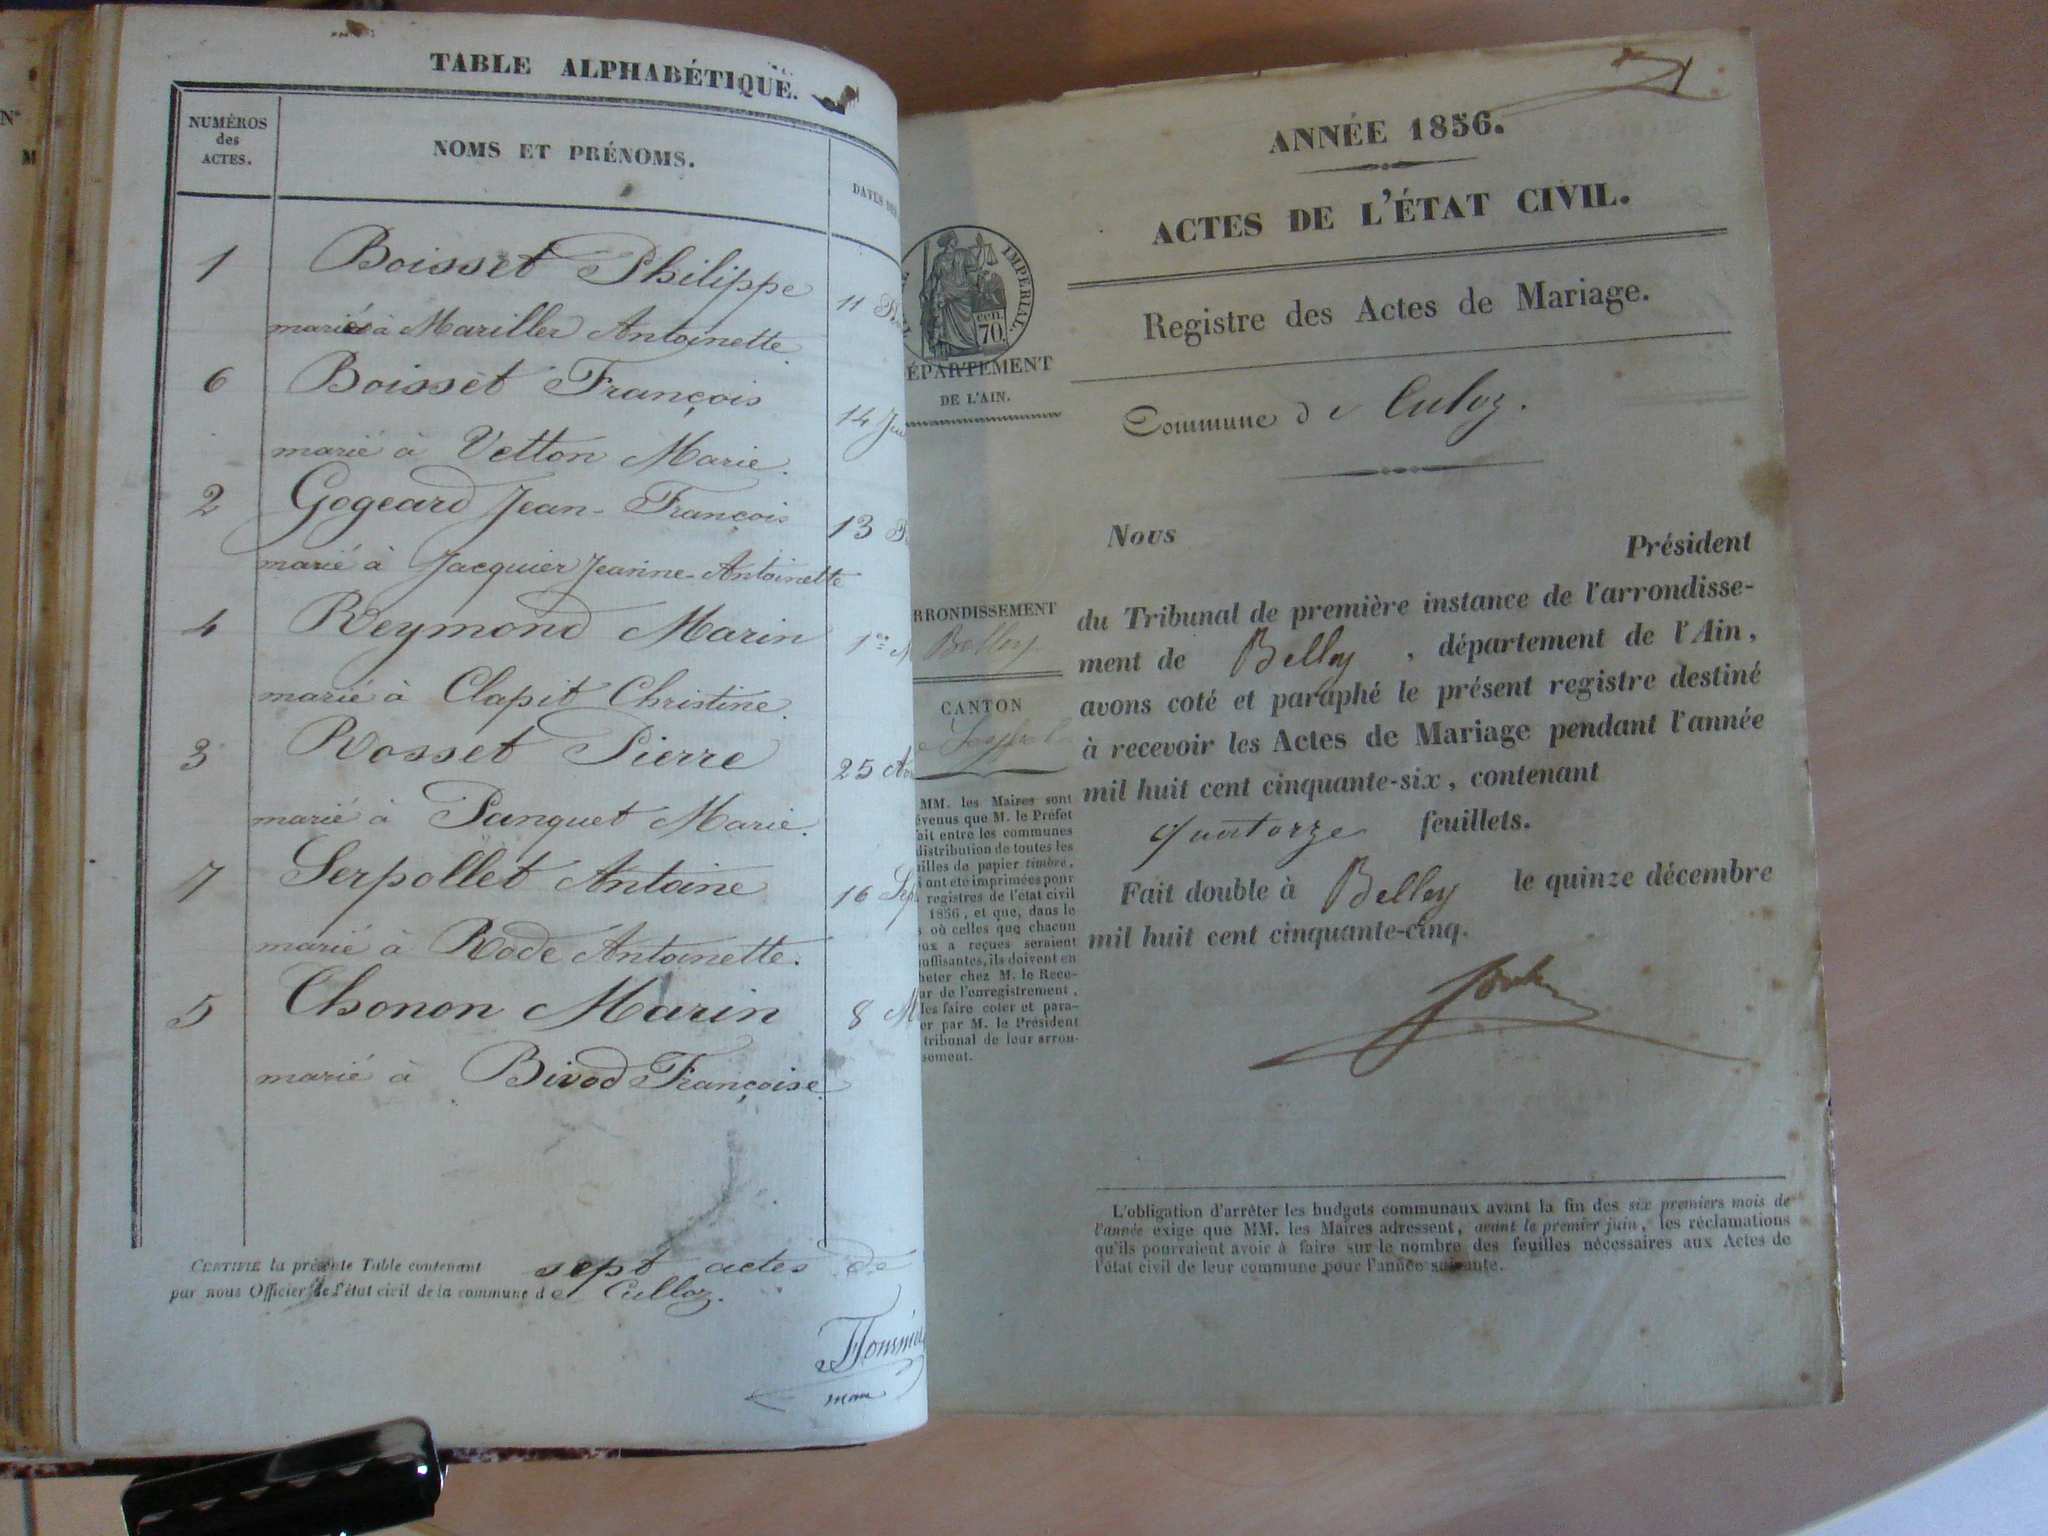 TABLE ALPHABÉTIQUE.
NUMÉROS
des
ACTES.
NOMS ET PRÉNOMS.
DATES DES
1 Boisset Philippe 11
marié à Mariller Antoinette
6 Boisset François 14
marié à Vetton Marie.
2 Gogeard Jean-François 13
marié à Jacquier Jeanne-Antoinette
4 Reymond Marin 1er M
marié à Clapit Christine.
3 Rosset Pierre 25 Av
marié à Panquet Marie.
7 Serpollet Antoine 16 Sep
marié à Rode Antoinette.
5 Chonon Marin 8 M
marié à Bivod Françoise.
CERTIFIÉ la présente Table contenant sept actes de
par nous Officier de l'état civil de la commune de Culloz.
N°
M
ANNÉE 1856.
ACTES DE L'ÉTAT CIVIL.
Registre des Actes de Mariage.
Commune de Culoz.
IMPÉRIAL.
cen.
70.
ÉPARTEMENT
DE L'AIN.
RRONDISSEMENT
Belley
CANTON
MM. les Maires sont
évenus que M. le Préfet
ait entre les communes
distribution de toutes les
uilles de papier timbre,
i ont été imprimées pour
registres de l'état civil
1856, et que, dans le
s où celles que chacun
eux a reçues seraient
suffisantes, ils doivent en
heter chez M. le Rece-
ur de l'enregistrement,
les faire coter et para-
er par M. le Président
tribunal de leur arron-
sement.
Nous Président
du Tribunal de première instance de l'arrondisse-
ment de Belley, département de l'Ain,
avons coté et paraphé le présent registre destiné
à recevoir les Actes de Mariage pendant l'année
mil huit cent cinquante-six, contenant
quatorze feuillets.
Fait double à Belley le quinze décembre
mil huit cent cinquante-cinq.
L'obligation d'arrêter les budgets communaux avant la fin des six premiers mois de
l'année exige que MM. les Maires adressent, avant le premier juin, les réclamations
qu'ils pourraient avoir à faire sur le nombre des feuilles nécessaires aux Actes de
l'état civil de leur commune pour l'année suivante.